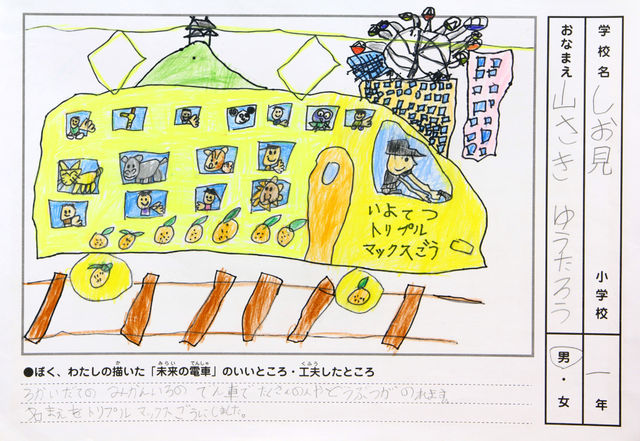 いよてつ
トリプル
マックスごう
●ぼく、わたしの描いた「未来の電車」のいいところ・工夫したところ
3かいだての みかんいろの でん車で たくさんの人やどうぶつが のれます。
名まえをトリプルマックスごうにしました。
学校名 しお見 小学校
おなまえ 山さき ゆうたろう
一年
男・女